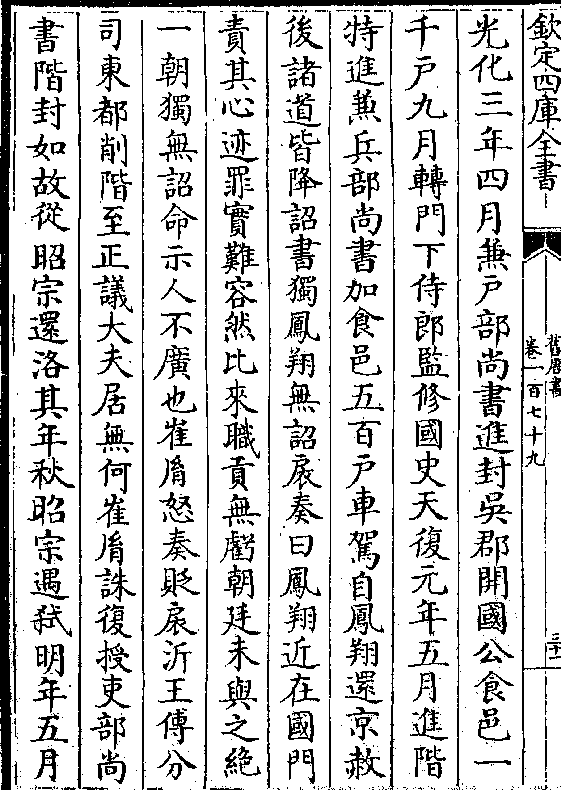 欽定四庫全書
舊唐書
卷一百七十九
三十一
光化三年四月兼戸部尚書進封吳郡開國公食邑一
千戸九月轉門下侍郎監修國史天復元年五月進階
特進兼兵部尚書加食邑五百戸車駕自鳳翔還京赦
後諸道皆降詔書獨鳳翔無詔扆奏曰鳳翔近在國門
責其心迹罪實難容然比來職貢無虧朝廷未與之絶
一朝獨無詔命示人不廣也崔𦙍怒奏貶扆沂王傅分
司東都削階至正議大夫居無何崔𦙍誅復授吏部尚
書階封如故從昭宗還洛其年秋昭宗遇弑明年五月